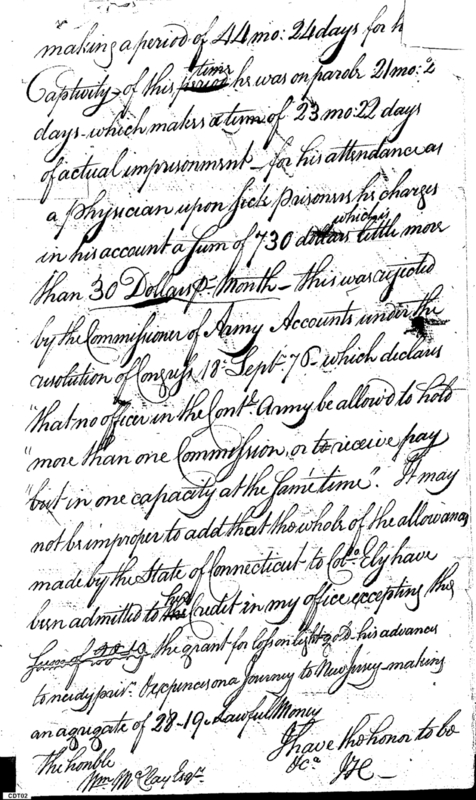 making a period of 44 mo: 24 days for h
Captivity - of this period time he was on parole 21 mo: 2
days - which makes a term of 23 mo: 22 days
of actual imprisonment - for his attendance as
a physician upon sick prisoners he charges
in his account a sum of 730 dollars which is little more
than 30 Dollars pr Month - this was rejected
by the Commissioner of Army Accounts under the
resolution of Congress 18 Sept 76 - which declares
"that no officer in the Contl Army be allow'd to hold
"more than one Commission, or to receive pay
"but in one capacity at the same time". It may
not be improper to add that the whole of the allowances
made by the State of Connecticut to Colo Ely have
been admitted to his Credit in my office excepting the
Sum of the grant for loss on light gold his advances
to needy pris & expences on a Journey to New Jersey - making
an agregate of 28-19 Lawful Money
I have the honor to be
&ca
JH -
The honble
Wm McClay Esqr
CDT02